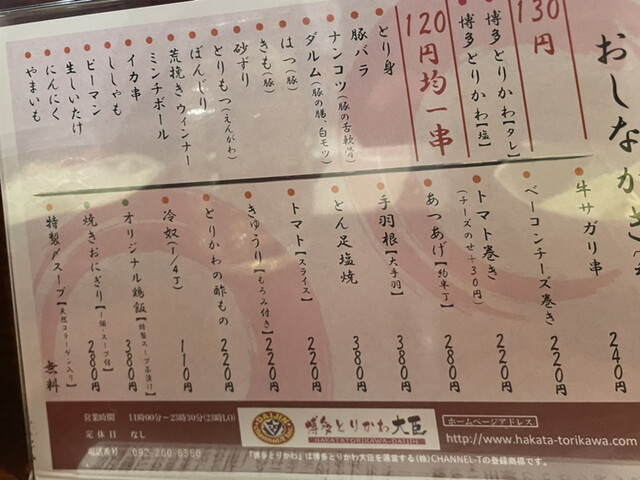 おしながき
130円
博多とりかわ【タレ】
博多とりかわ【塩】
120円均一串
とり身
豚バラ
ナンコツ(豚の舌軟骨)
ダルム(豚の腸、白モツ)
はつ(豚)
きも(豚)
砂ずり
とりもつ(えんがわ)
ぼんじり
荒挽きウィンナー
ミンチボール
イカ串
ししゃも
ピーマン
生しいたけ
にんにく
やまいも
牛サガリ串 240円
ベーコンチーズ巻き 220円
トマト巻き 220円
(チーズのせ+30円)
あつあげ【約半丁】 280円
手羽根【大手羽】 380円
とん足塩焼 380円
トマト【スライス】 220円
きゅうり【もろみ付き】 220円
とりかわの酢もの 220円
冷奴(1/4丁) 110円
オリジナル鶏飯【特製スープ茶漬け】 380円
焼きおにぎり【1個・スープ付】 280円
特製〆スープ【天然コラーゲン入り】 無料
営業時間 11時00分〜23時30分(23時LO)
定休日 なし
電話番号 092-260-6360
DAIJIN
博多とりかわ大臣
HAKATATORIKAWA-DAIJIN
ホームページアドレス
http://www.hakata-torikawa.com/
「博多とりかわ」は博多とりかわ大臣を運営する(株)CHANNEL-Tの登録商標です。